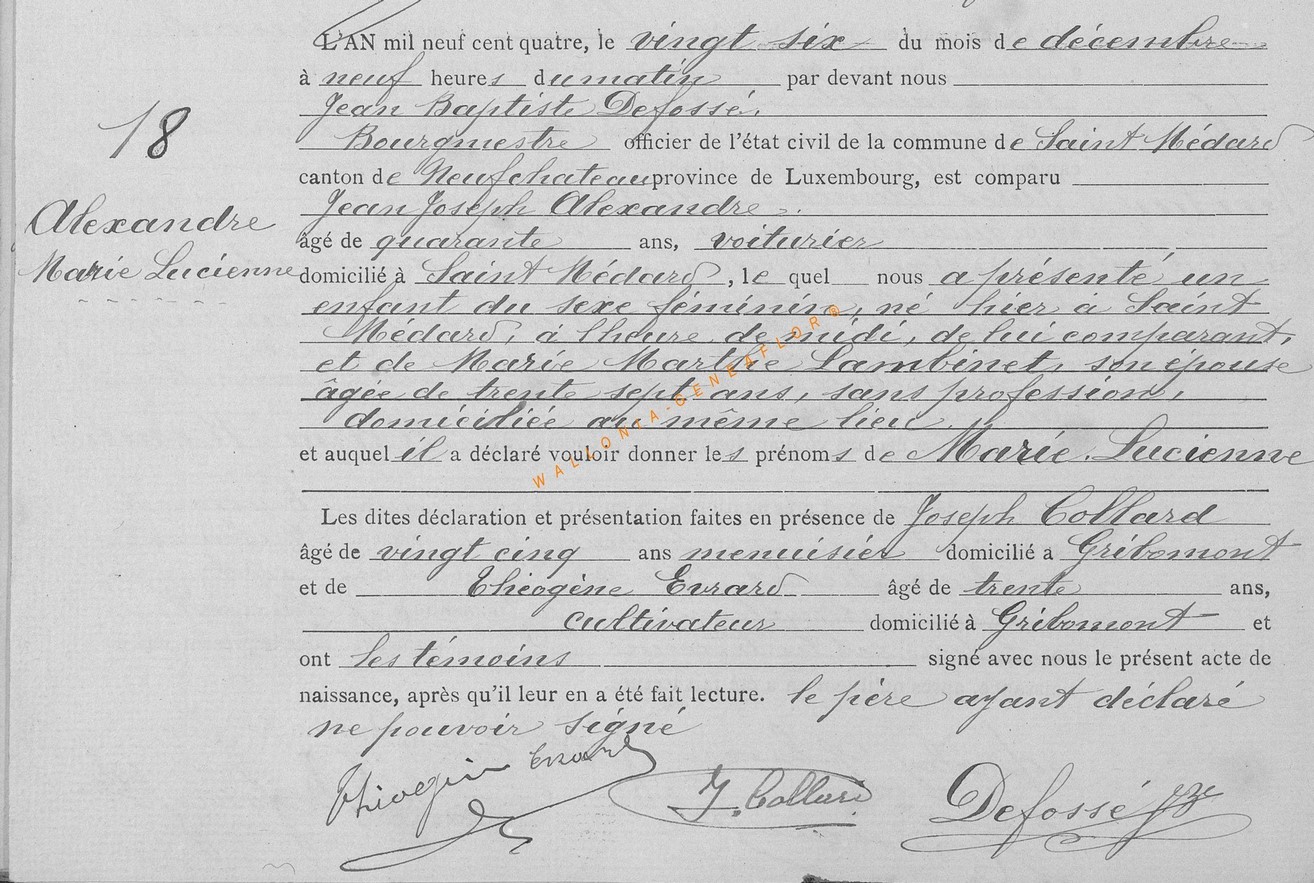 L'AN mil neuf cent quatre, le vingt six du mois de décembre
à neuf heures du matin par devant nous
Jean Baptiste Defossé.
Bourgmestre officier de l'état civil de la commune de Saint Médard
canton de Neufchateau province de Luxembourg, est comparu
Jean Joseph Alexandre.
âgé de quarante ans, voiturier
domicilié à Saint Médard, lequel nous a présenté un
enfant du sexe féminin, né hier à Saint
Médard, à l'heure de midi, de lui comparant,
et de Marie Marthe Lambinet, son épouse
âgée de trente sept ans, sans profession,
domiciliée au même lieu.
et auquel il a déclaré vouloir donner les prénoms de Marie Lucienne
Les dites déclaration et présentation faites en présence de Joseph Collard
âgé de vingt cinq ans menuisier domicilié a Gribomont
et de Théogène Evrard âgé de trente ans,
cultivateur domicilié à Gribomont et
ont les témoins signé avec nous le présent acte de
naissance, après qu'il leur en a été fait lecture. le père ayant déclaré
ne pouvoir signé
18
Alexandre
Marie Lucienne
Théogène Evrard
J. Collard
Defossé
WALLONIA-GENEAFLOR®